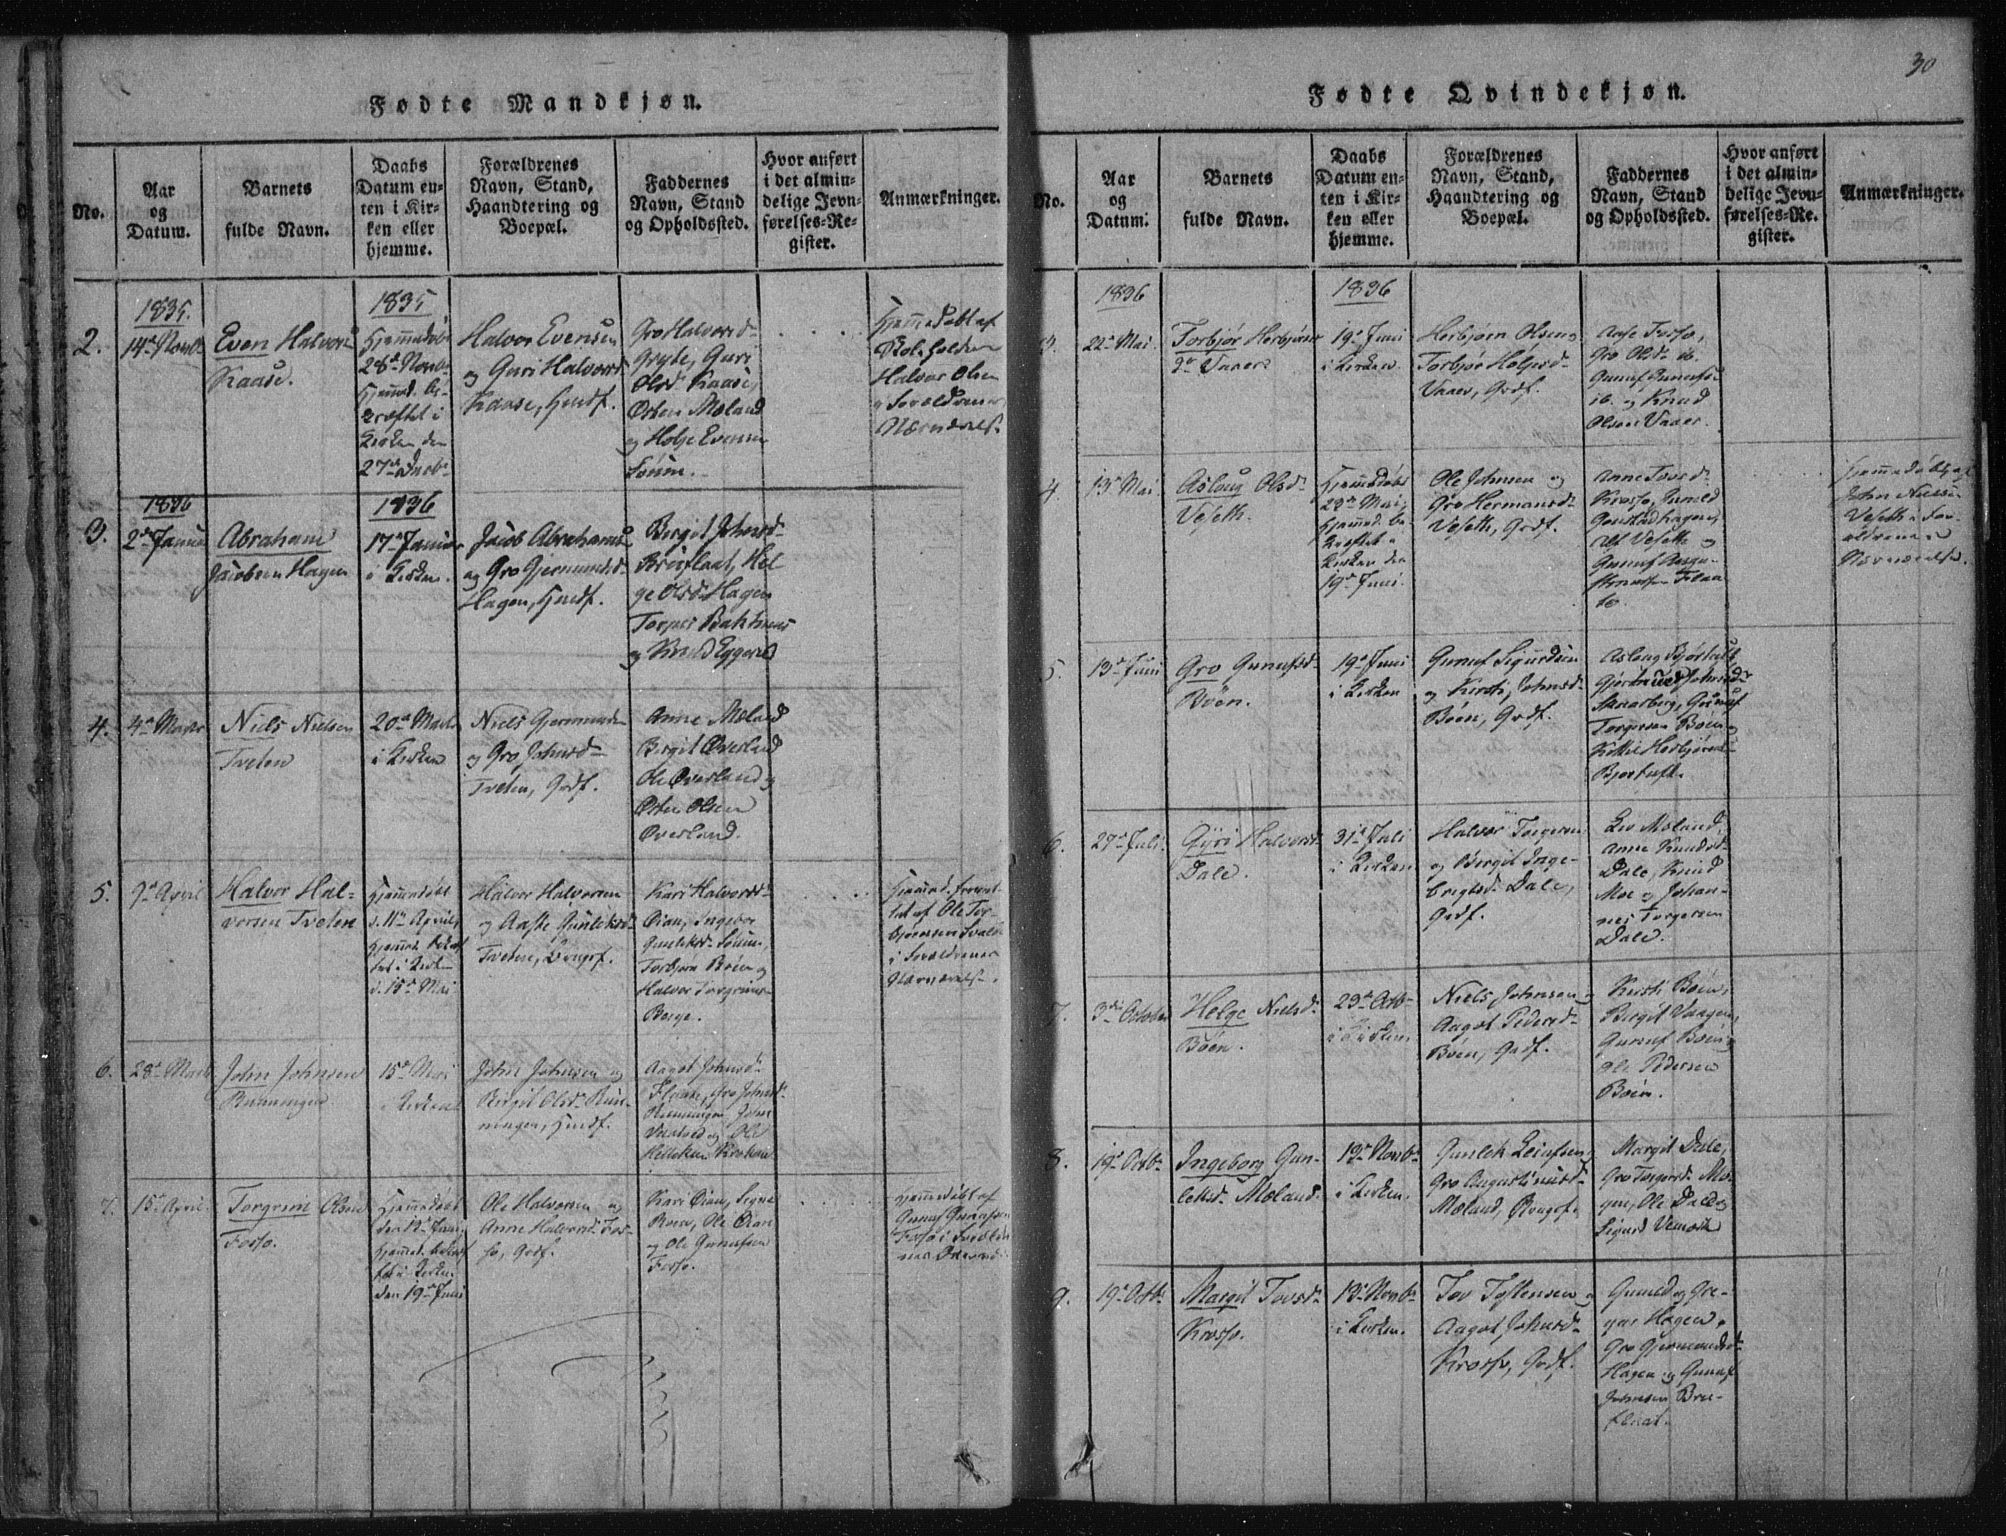 Fødte Mandkjøn.
No.
Aar
og
Datum.
Barnets
fulde Navn.
Daabs
Datum en-
ten i Kir-
ken eller
hjemme.
Forældrenes
Navn, Stand,
Haandtering og
Boepæl.
Faddernes
Navn, Stand
og Opholdssted.
Hvor anført
i det almin-
delige Jevn-
førelses-Re-
gister.
Anmærkninger.
2.
1835.
14de Novb.
Even Halvors
Kaase.
1835
Hjemmedøbt
28de Novb.
Hjemmed. be-
kræftet i
Kirken den
27de Decb.
Halvor Evensen
og Guri Halvorsd.
Kaase, Huusf.
Gro Halvorsd.
Gryte, Guri
Olsd. Kaase,
Østen Mæland
og Holje Evensen
Hjemmedøbt af
Halvor Olsen
Nærværelse.
3.
1836
2den Januar
Abraham
Jacobsen Hagen
1836
17de Januar
i Kirken.
Jacob Abrahams.
og Gro Gjermundsd.
Hagen, Huusf.
Birgit Johnsd.
Breiflaat, Hel
ge Olsd. Hagen
og Knud Eggerud
4.
4de Marts
Niels Nielsen
Tveten
20de Marts
i Kirken
Niels Gjermundsen
og Gro Johnsd.
Tveten, Grdf.
Anne Mæland
Birgit Øverland
Ole Øverland og
Østen Olsen
Øverland.
5.
9de April
Halvor Hal-
vorsen Tveten
Hjemmedøbt
d. 11te April,
Hjemmed. bekræf
tet i Kirken
d. 15de Mai
Halvor Halvorsen
og Aaste Gunleiksd.
Tveten,
Kari Halvorsd.
Øian, Ingebor
Gunleiksd.
Torbjørn Bøen og
Halvor Torgrims.
Berge.
Hjemmed. forret-
tet af Ole Tor-
bjørnsen
i Forældrenes
Nærværelse.
6.
28de Marts
John Johnsen
Runningen
15de Mai
i Kirken
John Johnsen og
Birgit Olsd. Run-
ningen, Huusf.
Aagot Johnsd.
Flaate, Gro Johnsd.
Runningen, John
og Ole
7.
15de April
Torgrim Olsen
Forsø.
Hjemmedøbt
den 12te Juni,
Hjemmed. bekræf
tet i Kirken
den 19de Juni
Ole Halvorsen og
Anne Halvorsd. For-
sø, Grdf.
Kari Øian, Signe
Bøen, Ole Øian
og Ole Gunufsen
Forsø.
Hjemmedøbt af
Gunuf Gunufsen
Forsø i Foreldre
30
Fødte Qvindekjøn.
No.
Aar
og
Datum.
Barnets
fulde Navn.
Daabs
Datum en-
ten i Kir-
ken eller
hjemme.
Forældrenes
Navn, Stand,
Haandtering og
Boepæl.
Faddernes
Navn, Stand
og Opholdssted.
Hvor anført
i det almin-
delige Jevn-
førelses-Re-
gister.
Anmærkninger.
3.
1836
22de Mai.
Torbjør Herbjørns
dr. Vaaer
1836
19de Juni
i Kirken
Herbjørn Olsen og
Torbjør Holjesd.
Vaaer, Grdf.
Aase Forsø,
Gro Olsd. ib.
Gunuf Gunufs.
ib. og Knud
Olsen Vaaer.
4.
13de Mai
Aslaug Olsd.
Veseth.
Hjemmedøbt
23de Mai,
Hjemmed. be-
kræftet i
Kirken den
19de Juni
Ole Johnsen og
Gro Hermansd.
Veseth, Grdf.
Anne Tovsd.
Krosso, Gunild
Alf Veseth og
Gunuf
Hjemmedøbt af
John Nielsen
Veseth i For-
ældrenes
Nærværelse.
5.
13de Juni
Gro Gunufsd.
Bøen.
19de Juni
i Kirken
Gunuf Sigurdsen
og Kirsti Johnsd.
Bøen, Grdf.
Aslaug Bjørtuft,
Gjermund Johnsd.
Sanarberg, Gunuf
Torgersen Bøen og
Kittil Herbjørnsen
Bjortuft.
6.
27de Juli.
Gyri Halvorsd.
Dale.
31te Juli
i Kirken
Halvor Torgersen
og Birgit Inge-
brigtsd. Dale,
Grdf.
Liv Mæland,
Anne Knudsd.
Dale, Knud
Moe og Johan-
nes Torgersen
Dale.
7.
3die October
Helge Nielsd.
Bøen.
23de Octb.
i Kirken.
Niels Johnsen og
Aagot Pedersd.
Bøen, Grdf.
Kirsti Bøen,
Birgit Vaagen,
Gunuf Bøen og
Ole Pedersen
Bøen.
8.
19de Octb.
Ingeborg Gun-
leiksd. Mæland.
13de Novb.
i Kirken.
Gunlek Leiufsen,
Gro Augustinusd.
Mæland,
Margit Dale,
Gro Torgersd. Mo-
gen, Ole Dale og
Sigurd
9.
19de Octb.
Margit Tovsd.
Krosso.
13de Novb.
i Kirken.
Tov Tostensen og
Aagot Johnsd.
Krosso, Grdf.
Gunild og Gre-
gar Hagen,
Gro Gjermundsd.
Hagen og Gunuf
Johnsen Brei-
flaat.